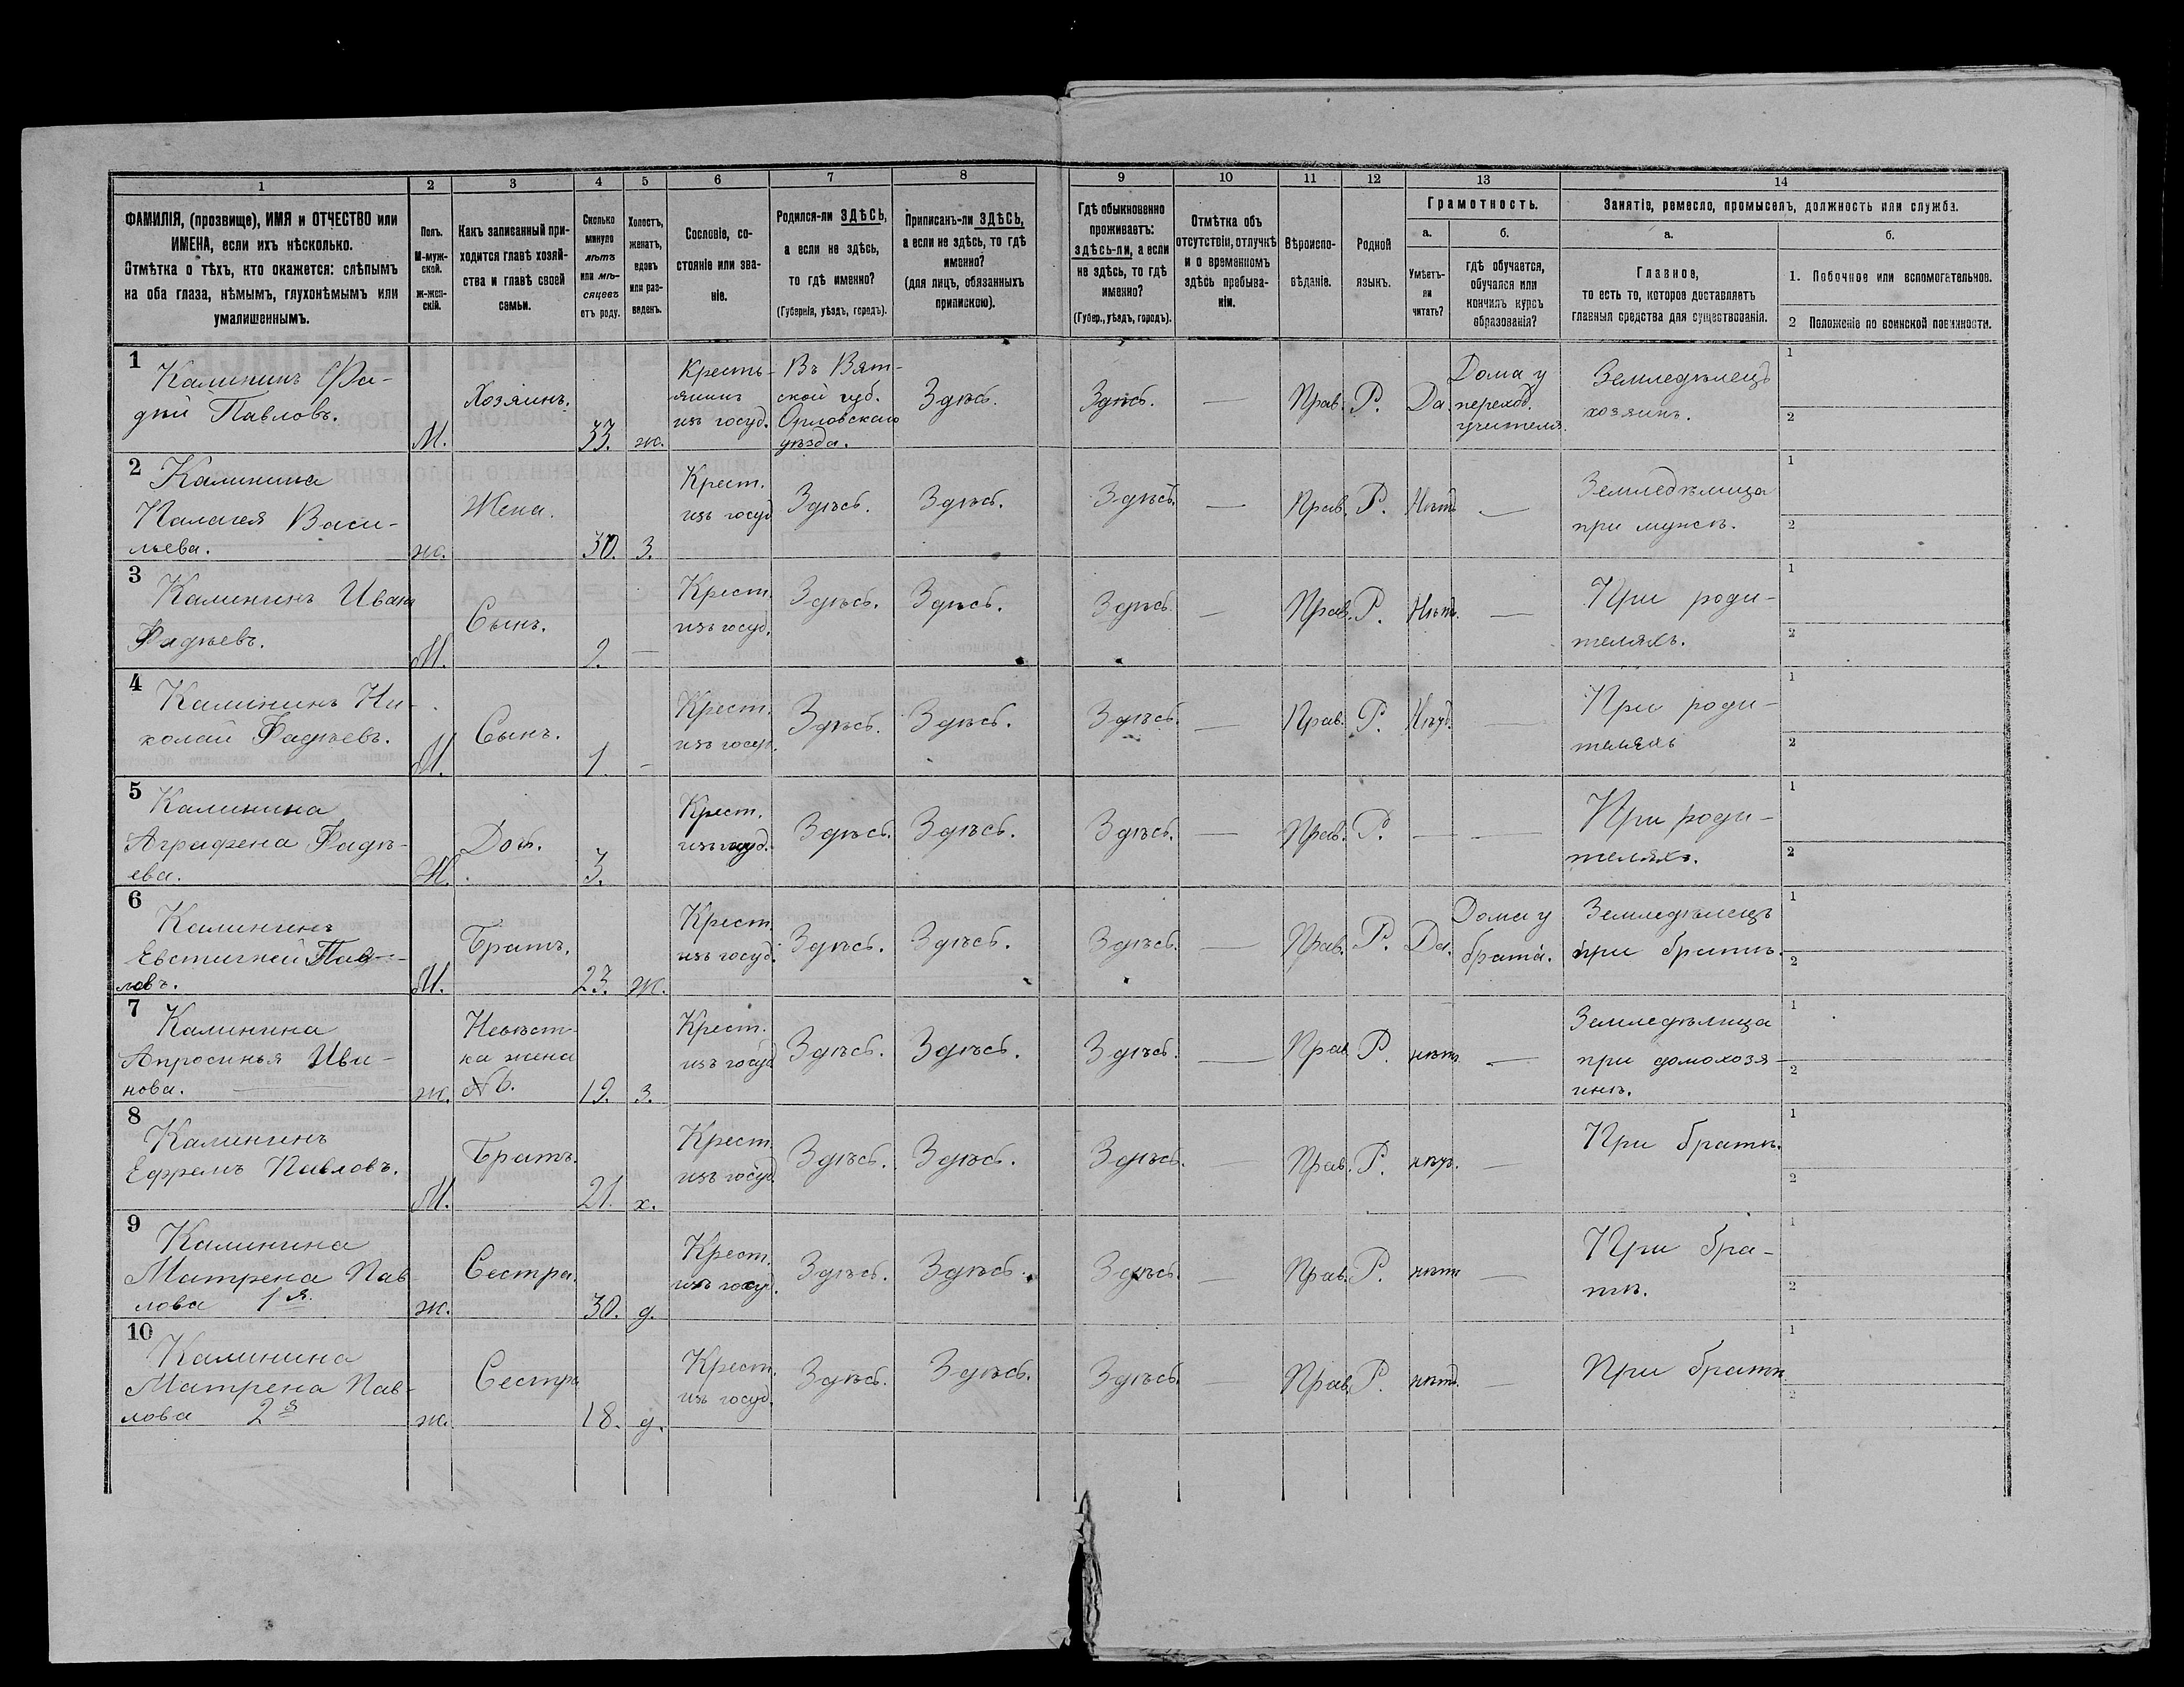 1 2 3 4 5 6 7 8 9 10 11 12 13 14
ФАМИЛІЯ, (прозвище), ИМЯ и ОТЧЕСТВО или
ИМЕНА, если ихъ нѣсколько.
Отмѣтка о тѣхъ, кто окажется: слѣпымъ
на оба глаза, нѣмымъ, глухонѣмымъ или
умалишеннымъ.
Полъ.
М-муж-
ской.
ж-жен-
скій.
Какъ записанный при-
ходится главѣ хозяй-
ства и главѣ своей
семьи.
Сколько
минуло
лѣтъ
или мѣ-
сяцевъ
отъ роду.
Холостъ,
женатъ,
вдовъ
или раз-
веденъ.
Сословіе, со-
стояніе или зва-
ніе.
Родился-ли ЗДѢСЬ,
а если не здѣсь,
то гдѣ именно?
(Губернія, уѣздъ, городъ).
Приписанъ-ли ЗДѢСЬ,
а если не здѣсь, то гдѣ
именно?
(для лицъ, обязанныхъ
припискою).
Гдѣ обыкновенно
проживаетъ:
здѣсь-ли, а если
не здѣсь, то гдѣ
именно?
(Губер., уѣздъ, городъ).
Отмѣтка объ
отсутствіи, отлучкѣ
и о временномъ
здѣсь пребыва-
ніи.
Вѣроиспо-
вѣданіе.
Родной
языкъ.
Грамотность.
а.
Умѣетъ-
ли
читать?
б.
гдѣ обучается,
обучался или
кончилъ курсъ
образованія?
Занятіе, ремесло, промыселъ, должность или служба.
а.
Главное,
то есть то, которое доставляетъ
главныя средства для существованія.
б.
1. Побочное или вспомогательное.
2 Положеніе по воинской повинности.
1
Калининъ Фа-
дѣй Павловъ.
М.
Хозяинъ.
33.
ж.
Кресть-
янинъ
изъ госуд.
Въ Вят-
ской губ.
Орловскаго
уѣзда.
Здѣсь.
Здѣсь.
—
Прав.
Р.
Да.
Дома у
переход.
учителя.
Земледѣлецъ
хозяинъ.
1
2
2
Калинина
Палагея Васи-
льева.
ж.
Жена.
30.
З.
Крест.
изъ госуд
Здѣсь.
Здѣсь.
Здѣсь.
—
Прав.
Р.
Нѣтъ
—
Земледѣлица
при мужѣ.
1
2
3
Калининъ Иванъ
Фадѣевъ.
М.
Сынъ.
2.
—
Крест.
изъ госуд.
Здѣсь.
Здѣсь.
Здѣсь.
—
Прав.
Р.
Нѣтъ.
—
При роди-
теляхъ.
1
2
4
Калининъ Ни-
колай Фадѣевъ.
М.
Сынъ.
1
-
Крест.
изъ госуд.
Здѣсь.
Здѣсь.
Здѣсь.
—
Прав.
Р.
Нѣтъ.
—
При роди-
теляхъ
1
2
5
Калинина
Аграфена Фадѣ-
ева.
Ж.
Дочь.
3.
Крест.
изъ госуд.
Здѣсь.
Здѣсь.
Здѣсь.
—
Прав.
Р.
—
—
При роди-
теляхъ.
1
2
6
Калининъ
Евстигней Пав-
ловъ.
М.
Братъ.
23.
Ж.
Крест.
изъ госуд.
Здѣсь.
Здѣсь.
Здѣсь.
—
Прав.
Р.
Да.
Дома у
брата.
Земледѣлецъ
при братѣ.
1
2
7
Калинина
Апросинья Ива-
нова.
ж.
Невѣст-
ка жена
№ 6.
19.
З.
Крест.
изъ госуд
Здѣсь.
Здѣсь.
Здѣсь.
—
Прав.
Р.
нѣтъ
—
Земледѣлица
при домохозя-
инѣ.
1
2
8
Калининъ
Ефремъ Павловъ.
М.
Братъ.
21.
х.
Крест.
изъ госуд.
Здѣсь.
Здѣсь.
Здѣсь.
—
Прав.
Р.
нѣтъ.
—
При братѣ.
1
2
9
Калинина
Матрена Пав
лова 1я.
ж.
Сестра.
30.
д.
Крест.
изъ госуд.
Здѣсь.
Здѣсь.
Здѣсь.
—
Прав.
Р.
нѣтъ
—
При бра-
тѣ.
1
2
10
Калинина
Матрена Пав-
лова 2я
ж.
Сестра
18.
д.
Крест.
изъ госуд.
Здѣсь.
Здѣсь.
Здѣсь.
Прав.
Р.
нѣтъ.
—
При братѣ
1
2